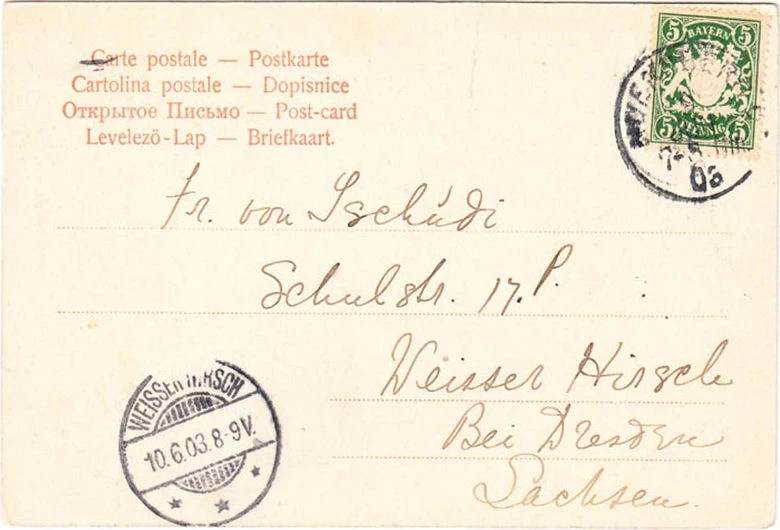 Carte postale — Postkarte
Cartolina postale — Dopisnice
Открытое Письмо — Post-card
Levelező-Lap — Briefkaart.
5 BAYERN 5
5 PFENNIG 5
03
Fr. von Tschúdi
Schulstr. 17. P.
Weisser Hirsch
Bei Dresden
Sachsen.
WEISSER HIRSCH
10.6.03.8-9V.